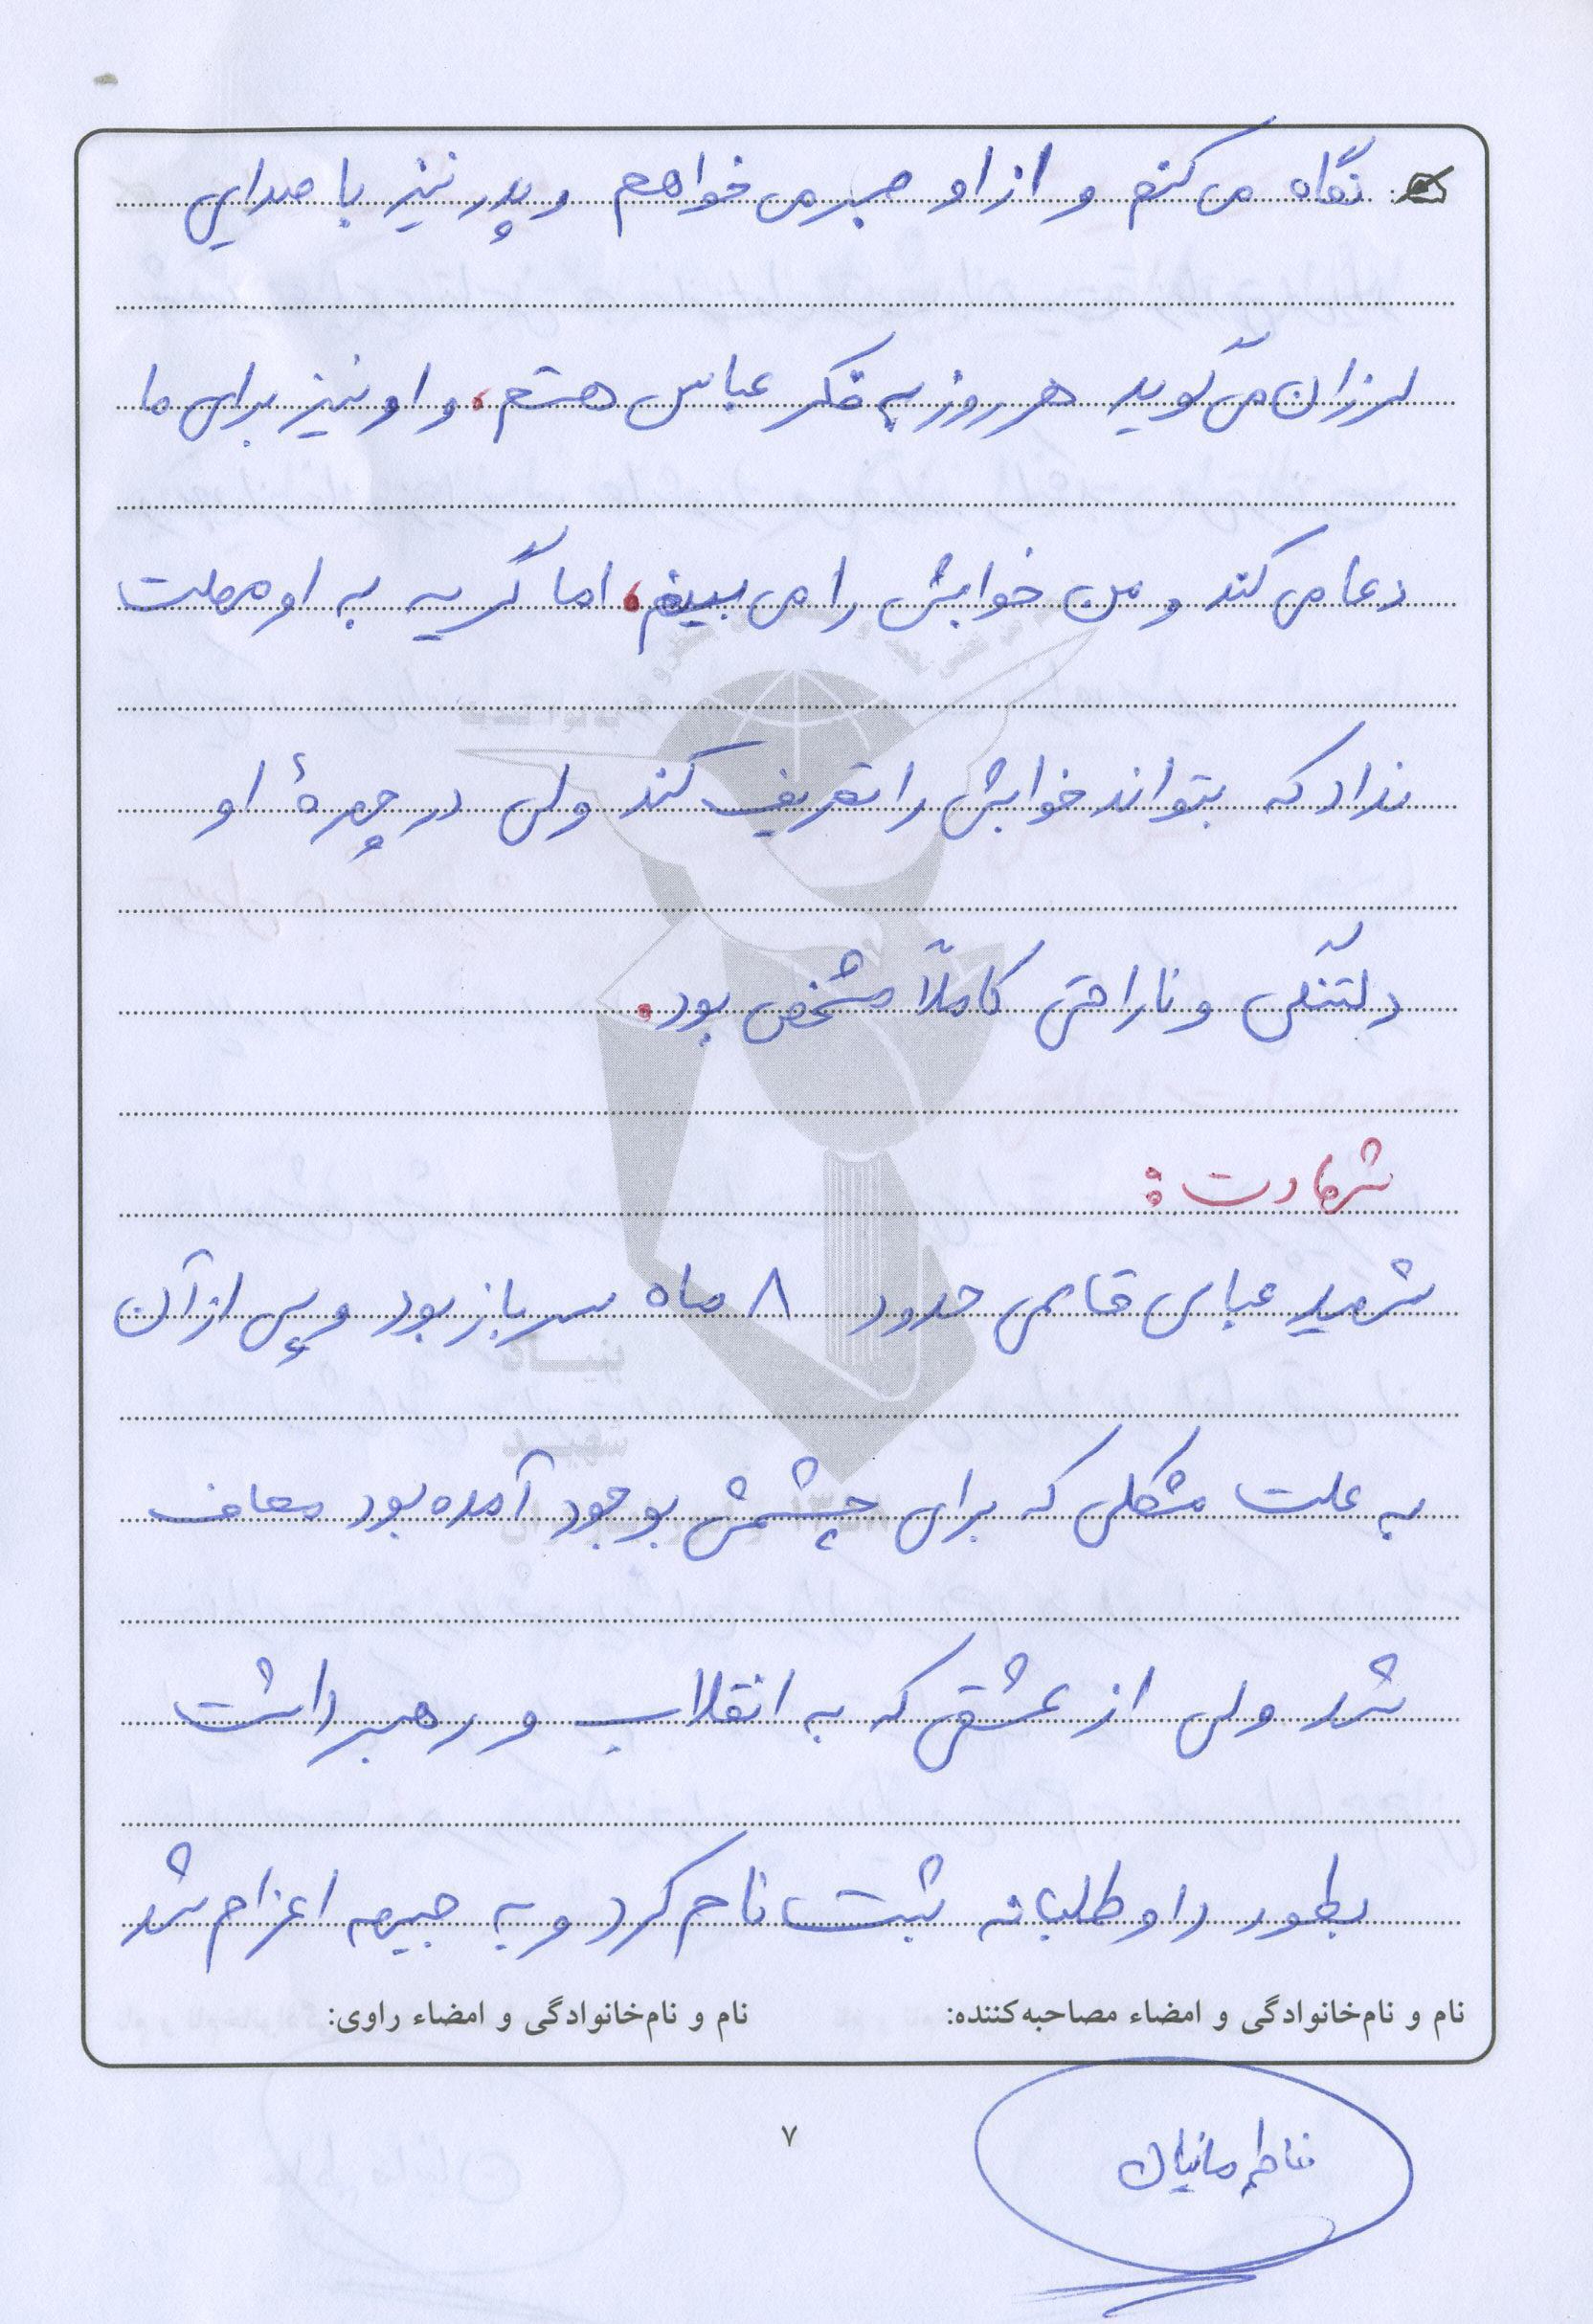 نگاه می کنم و از او صبر می خواهم و پدر نیز با صدایی
لرزان می گوید هر روز به فکر عباس هستم، و او نیز برای ما
دعا می کند و من خوابش را می بینم، اما گریه به او مهلت
نداد که بتواند خوابش را تعریف کند ولی در چهرهٔ او
دلتنگی و ناراحتی کاملاً مشخص بود.
شهادت:
شهید عباس قاسمی حدود ۸ ماه سرباز بود و پس از آن
به علت مشکلی که برای چشمش بوجود آمده بود معاف
شد ولی از عشقی که به انقلاب و رهبر داشت
بطور داوطلبانه ثبت نام کرد و به جبهه اعزام شد
نام و نام‌خانوادگی و امضاء مصاحبه‌کننده: نام و نام‌خانوادگی و امضاء راوی:
۷
فاطمه مانیان